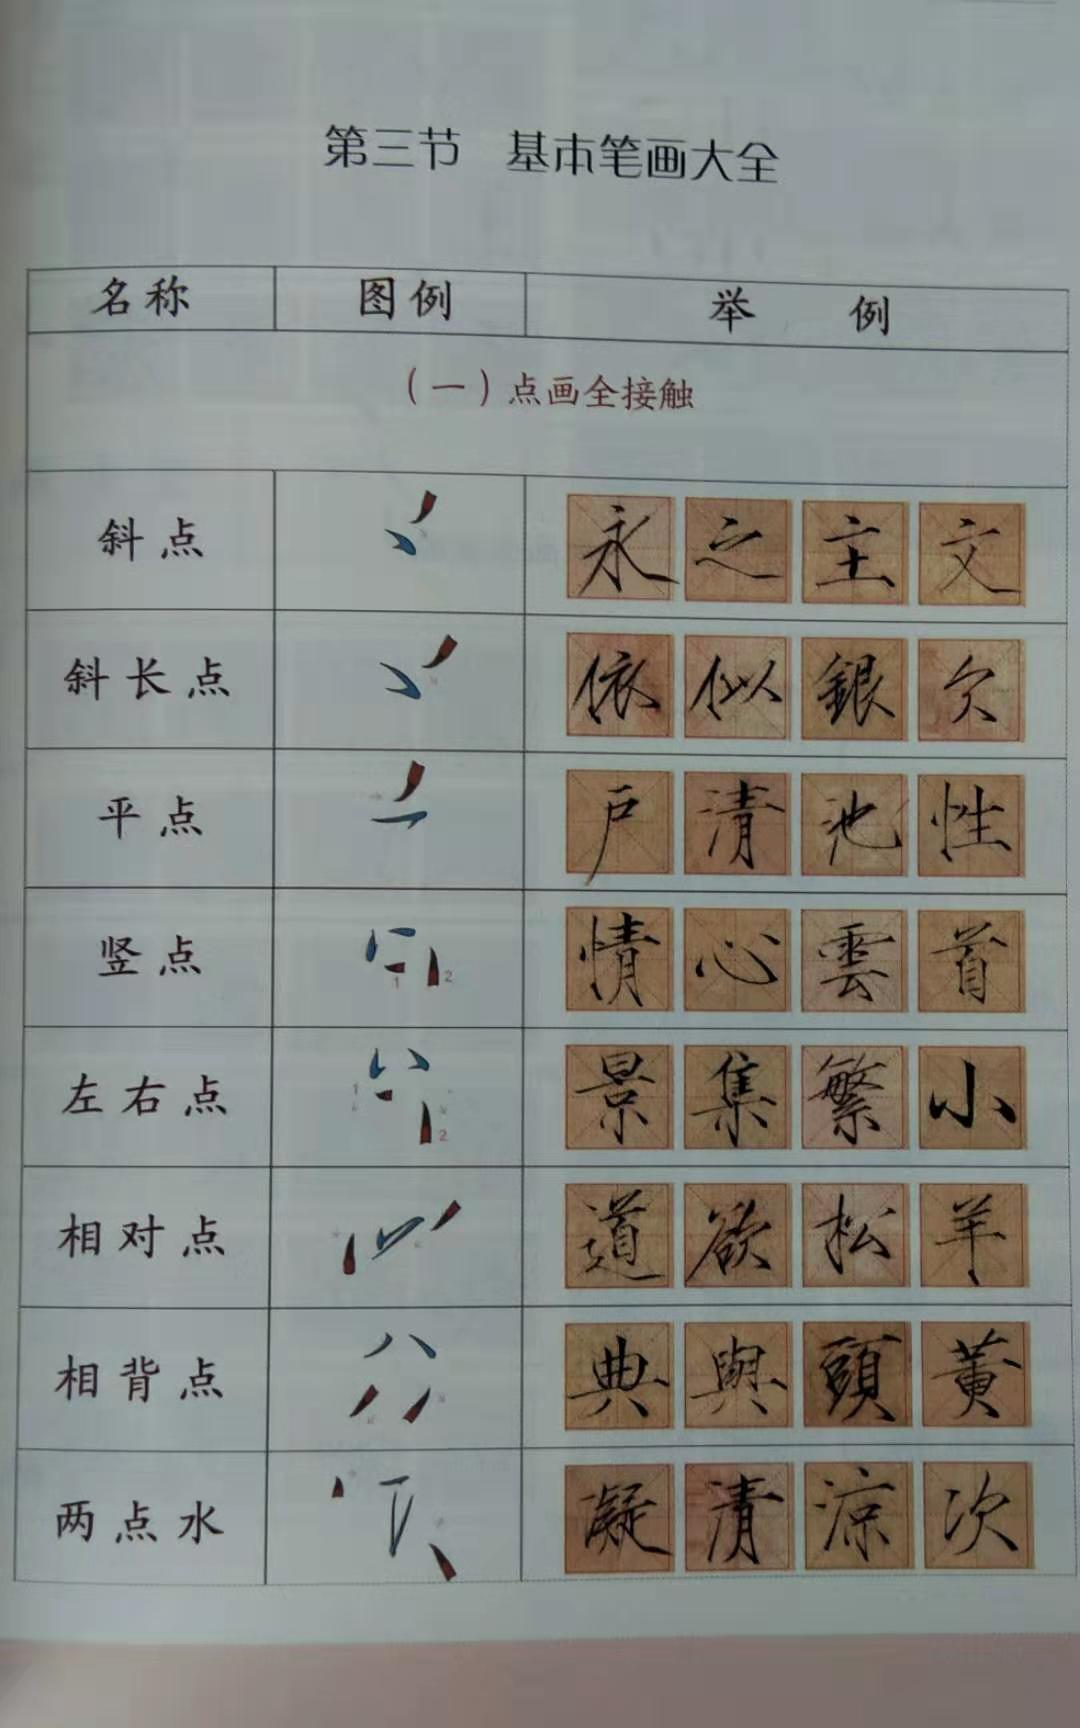 第三节 基本笔画大全
名称 图例 举例
（一）点画全接触
斜点 永之主文
斜长点 依似銀欠
平点 户清池性
竖点 1 2 情心雲首
左右点 1 2 景集繁小
相对点 道欲松羊
相背点 典與頭黄
两点水 凝清凉次